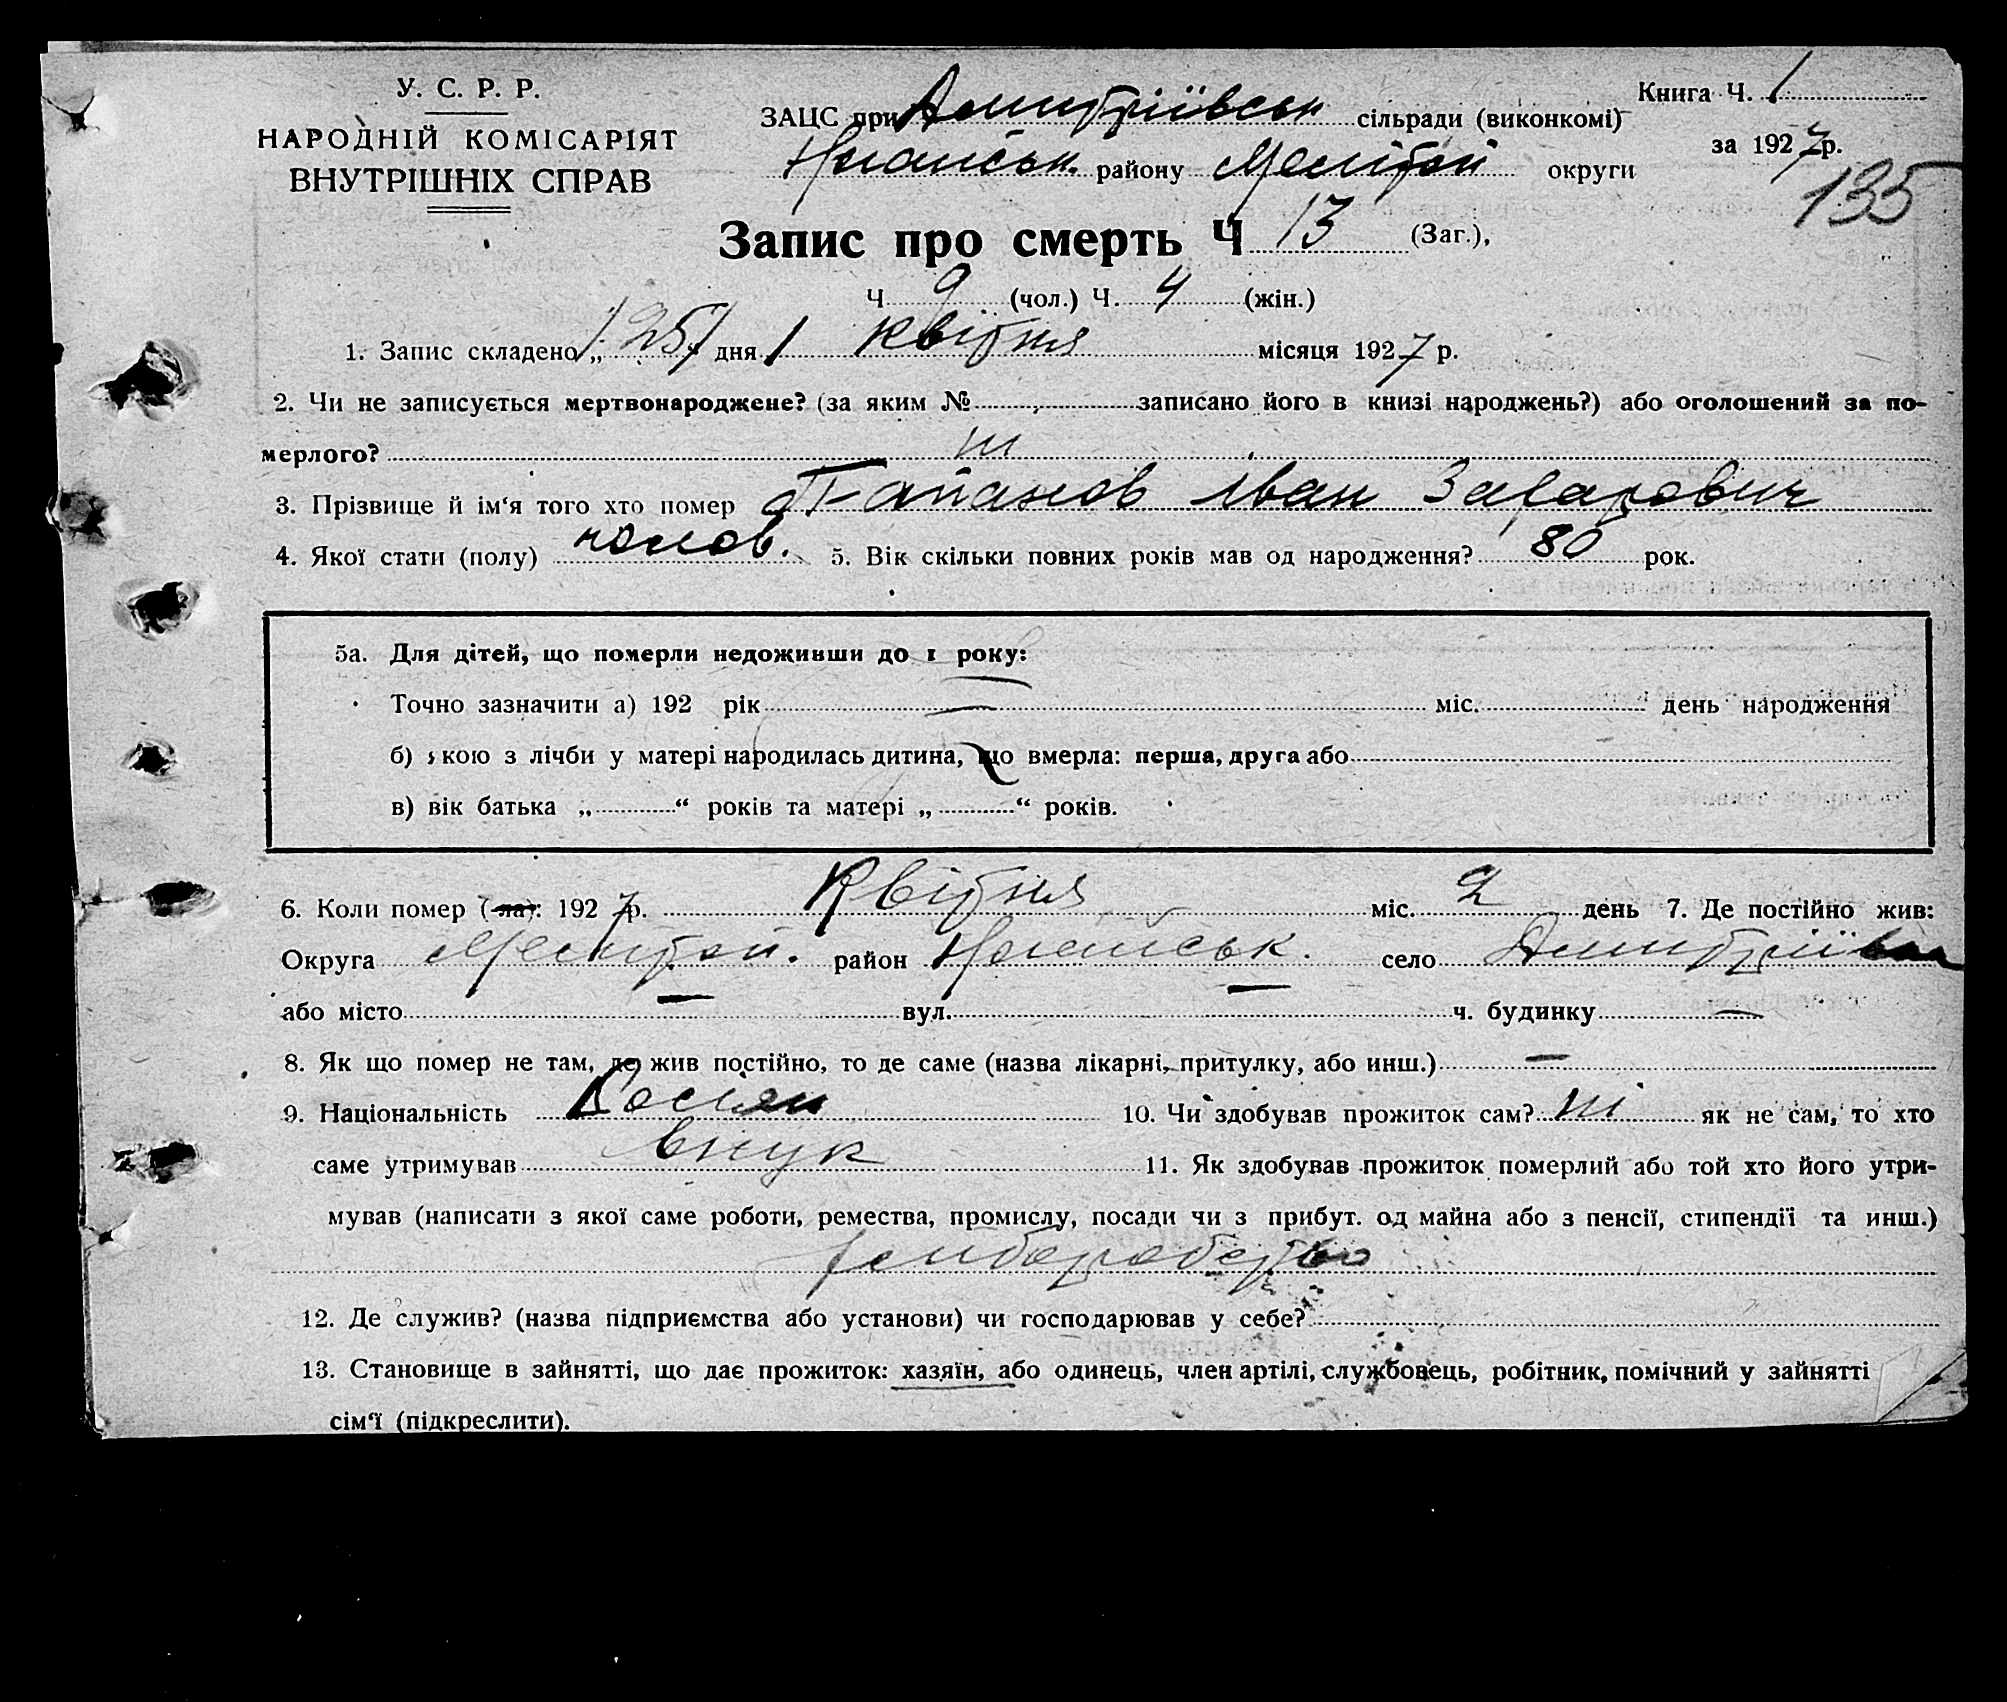 У. С. Р. Р.
НАРОДНІЙ КОМІСАРІЯТ
ВНУТРІШНІХ СПРАВ
Книга Ч. 1
за 1927 р.
135
ЗАЦС при Дмитріівськ сільради (виконкомі)
Ногайськ. району Мелітоп округи
Запис про смерть Ч 13 (Заг.),
Ч 9 (чол.) Ч. 4 (жін.)
1. Запис складено „ 25 " дня квітня місяця 1927 р.
2. Чи не записується мертвонароджене? (за яким № записано його в книзі народжень?) або оголошений за по-
мерлого? ні
3. Прізвище й ім'я того хто помер Іван Захарович
4. Якої стати (полу) чолов. 5. Вік скільки повних років мав од народження? 80 рок.
5а. Для дітей, що померли недоживши до 1 року:
Точно зазначити а) 192 рік — міс. день народження
б) якою з лічби у матері народилась дитина, що вмерла: перша, друга або
в) вік батька „ “ років та матері „ “ років.
6. Коли помер (ла): 1927 р. Квітня міс. 2 день 7. Де постійно жив:
Округа Мелітоп. район Ногайськ. село Дмитріівка
або місто — вул. — ч. будинку —
8. Як що помер не там, де жив постійно, то де саме (назва лікарні, притулку, або инш.) —
9. Національність Росіян 10. Чи здобував прожиток сам? ні як не сам, то хто
саме утримував внук 11. Як здобував прожиток померлий або той хто його утри-
мував (написати з якої саме роботи, ремества, промислу, посади чи з прибут. од майна або з пенсії, стипендії та инш.)
хліборобство
12. Де служив? (назва підприємства або установи) чи господарював у себе?
13. Становище в зайнятті, що дає прожиток: хазяїн, або одинець, член артілі, службовець, робітник, помічний у зайнятті
сім'ї (підкреслити).